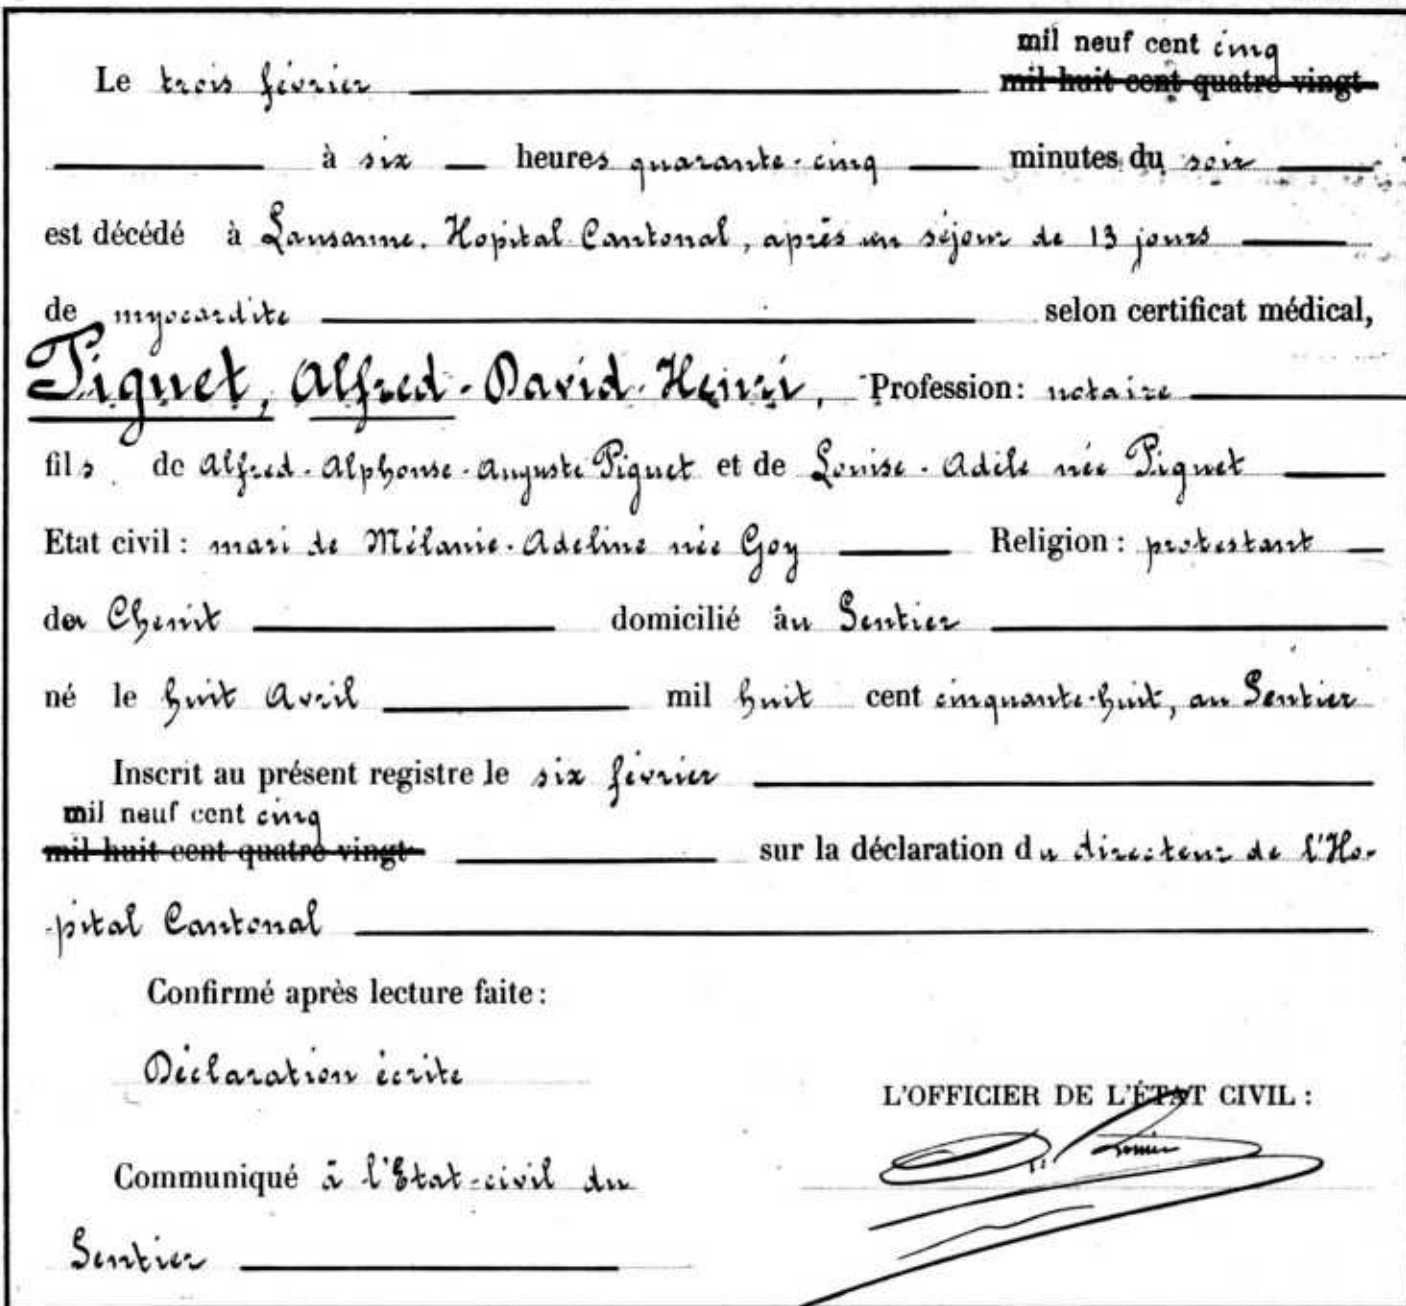 mil neuf cent cinq
Le trois février mil huit cent quatre vingt
à six heures quarante-cinq minutes du soir
est décédé à Lausanne. Hopital Cantonal, après un séjour de 13 jours
de myocardite selon certificat médical,
Piguet, Alfred-David-Henri, Profession: notaire
fils de Alfred-Alphonse-Auguste Piguet et de Louise-Adèle née Piguet
Etat civil: mari de Mélanie-Adeline née Goy Religion: protestant
du Chenit domicilié au Sentier
né le huit Avril mil huit cent cinquante-huit, au Sentier
Inscrit au présent registre le six février
mil neuf cent cinq
mil huit cent quatre vingt sur la déclaration du directeur de l'Ho-
-pital Cantonal
Confirmé après lecture faite:
Déclaration écrite
L'OFFICIER DE L'ÉTAT CIVIL:
Communiqué à l'Etat-civil du
Sentier